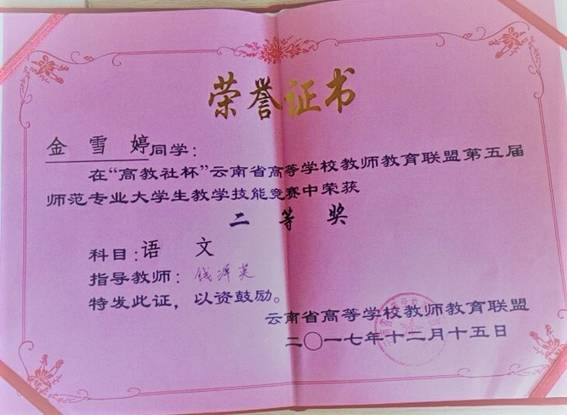 荣誉证书
金雪婷同学：
在“高教社杯”云南省高等学校教师教育联盟第五届
师范专业大学生教学技能竞赛中荣获
二等奖
科目：语文
指导教师：钱泽英
特发此证，以资鼓励。
云南省高等学校教师教育联盟
二〇一七年十二月十五日